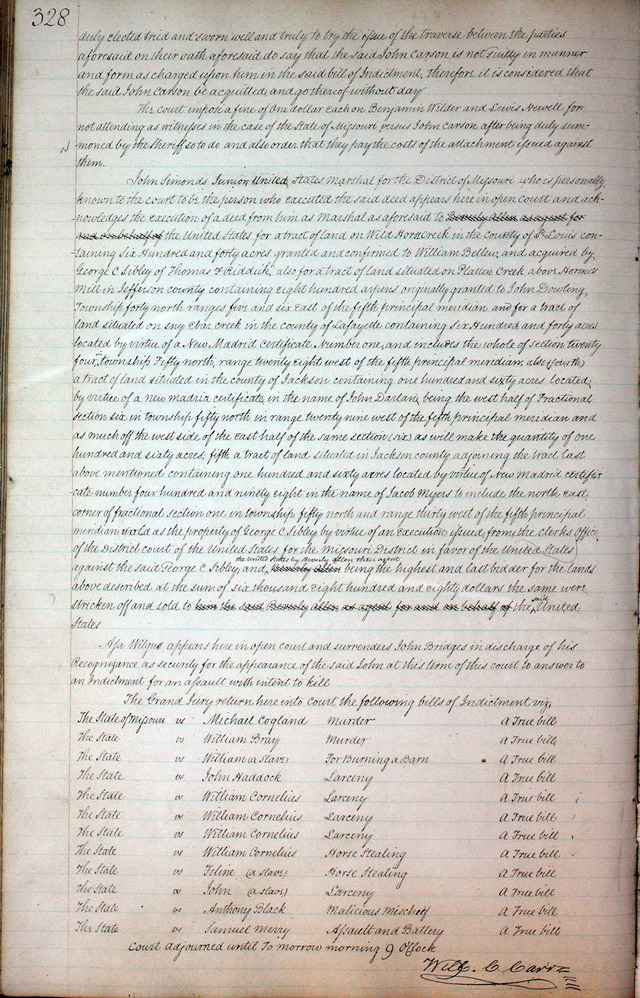 328
duly elected tried and sworn well and truly to try the issue of the traverse between the parties
aforesaid on their oath aforesaid do say that the said John Carson is not Guilty in manner
and form as charged upon him in the said bill of Indictment, therefore it is considered that
the said John Carson be acquitted, and go thereof without day
The court impose a fine of One dollar each on Benjamin Wilder and Lewis Newell for
not attending as witnesses in the case of the State of Missouri versus John Carson after being duly sum-
moned by the Sheriff so to do and also order that they pay the costs of the attachment issued against
them.
John Simonds Junior United States Marshal for the District of Missouri who is personally
known to the court to be the person who executed the said deed appears here in open court and ack-
nowledges the execution of a deed from him as Marshal as aforesaid to Beverly Allen as agent for
and on behalf of the United States for a tract of land on Wild Horse Creek in the County of St Louis con-
taining Six Hundred and forty acres granted and confirmed to William Bellew, and acquired by
George C Sibley of Thomas F Riddick, also for a tract of land situated on Plattin Creek above Hornes
Mill in Jefferson county containing eight hundred arpens originally granted to John Dowling,
Township forty north ranges five and six east of the fifth principal meridian and for a tract of
land situated on Sny Ebar creek in the county of Lafayette containing six Hundred and forty acres
located by virtue of a New Madrid Certificate Number one, and includes the whole of section twenty
four, township Fifty north, range twenty eight west of the fifth principal meridian, also (fourth)
a tract of land situated in the county of Jackson containing one hundred and sixty acres located,
by virtue of a new madria certificate, in the name of John Darlan, being the west half of Fractional
section six in township fifty north in range twenty nine west of the fifth principal meridian and
as much off the west side of the east half of the same section (six) as will make the quantity of one
hundred and sixty acres, fifth a tract of land situated in Jackson county adjoining the tract last
above mentioned containing one hundred and sixty acres located by virtue of New Madrid certifi-
-cate number four hundred and ninety eight in the name of Jacob Myers to include the north east
corner of fractional section one in township fifty north and range thirty west of the fifth principal
meridian sold as the property of George C Sibley by virtue of an execution issued from the clerks Office
of the District court of the United States for the Missouri District in favor of the United States
the United States by Beverly Allen their agent
against the said George C Sibley, and Beverly Allen being the highest and last bidder for the lands
above described at the sum of six thousand eight hundred and eighty dollars the same were
stricken off and sold to him the said Beverly Allen as agent for and on behalf of the said United
States
Asa Wilgus appears here in open court and surrenders John Bridges in discharge of his
Recognizance as security for the appearance of the said John at this term of this court to answer to
an Indictment for an assault with intent to kill
The Grand Jury return here into Court the following bills of Indictment viz;
The State of Missouri vs Michael Cogland Murder A True bill
The State vs William Bray Murder A True bill
The State vs William (a slave) For Burning a Barn A True bill
The State vs John Haddock Larceny A True bill
The State vs William Cornelius Larceny A True bill
The State vs William Cornelius Larceny A True bill
The State vs William Cornelius Larceny A True bill
The State vs William Cornelius Horse Stealing A True bill
The State vs Feline (a slave) Horse Stealing A True bill
The State vs John (a slave) Larceny A True bill
The State vs Anthony Black Malicious Mischief A True bill
The State vs Samuel Merry Assault and Battery A True bill
Court adjourned until To morrow morning 9 OClock
Wilf. C. Carr